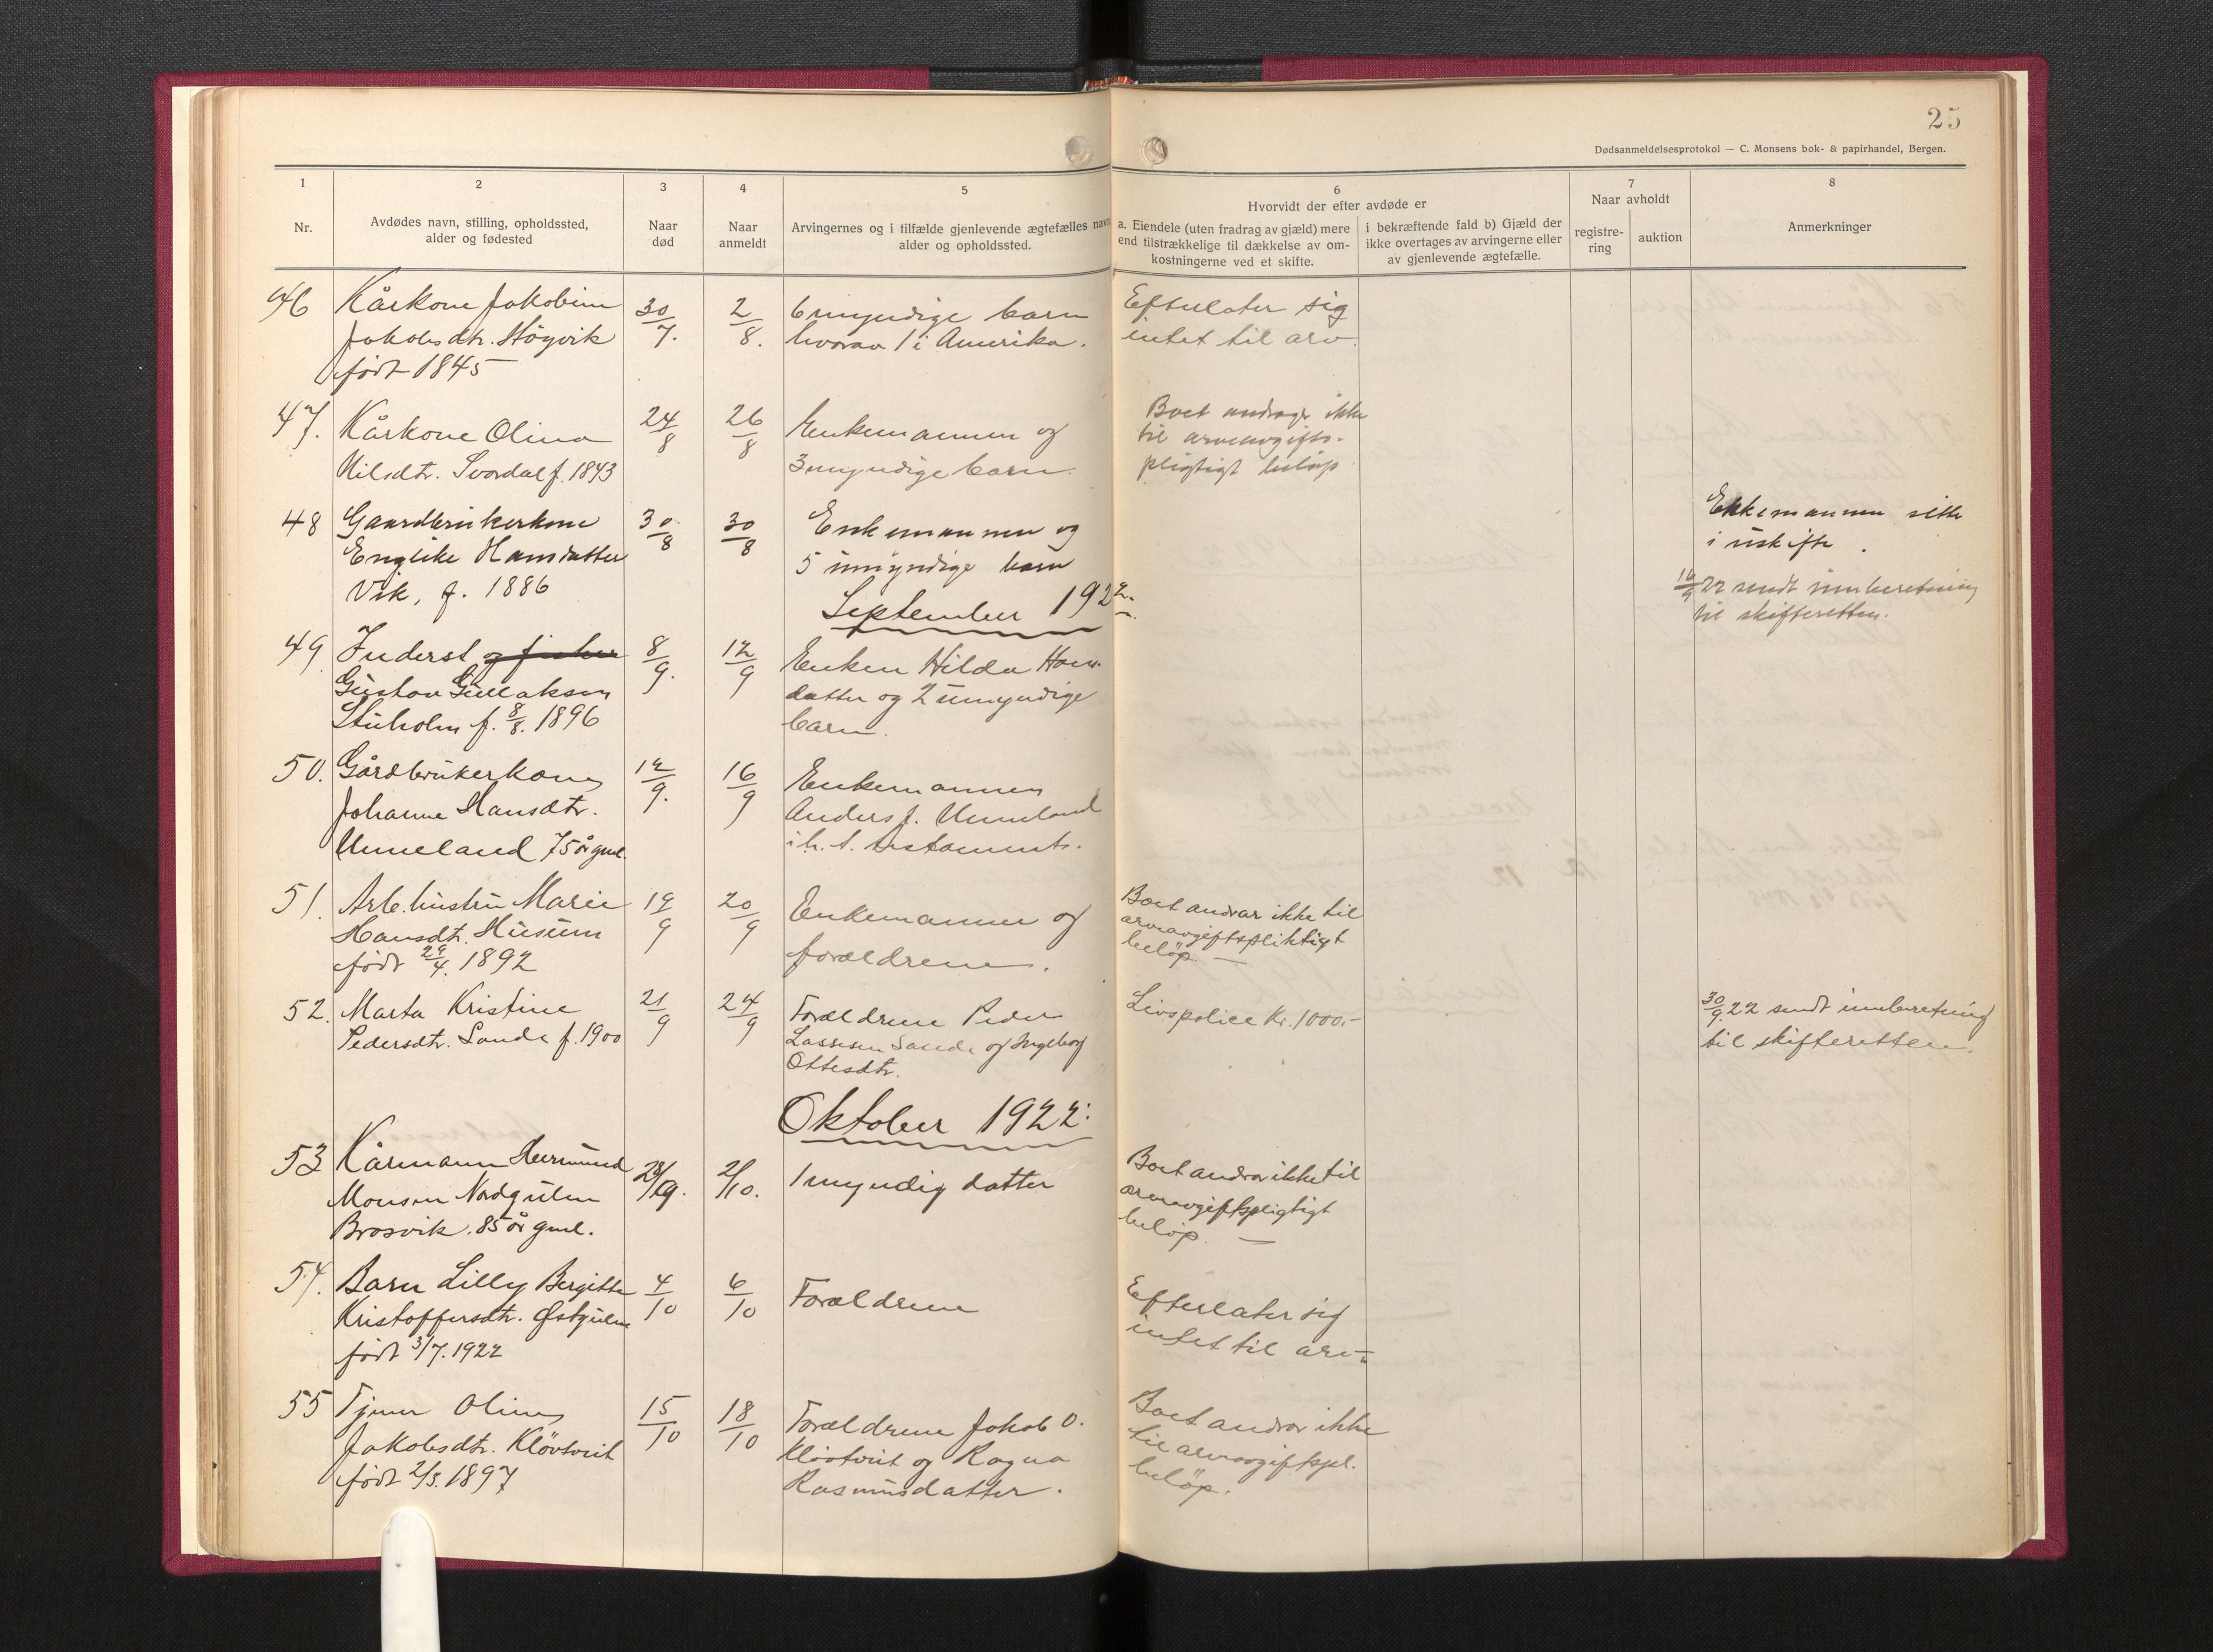 25
Dødsanmeldelsesprotokol — C. Monsens bok- & papirhandel, Bergen.
1
2
3
4
5
6
7
8
Nr.
Avdødes navn, stilling, opholdssted,
alder og fødested
Naar
død
Naar
anmeldt
Arvingernes og i tilfælde gjenlevende ægtefælles navn
alder og opholdssted.
Hvorvidt der efter avdøde er
a. Eiendele (uten fradrag av gjæld) mere
end tilstrækkelige til dækkelse av om-
kostningerne ved et skifte.
i bekræftende fald b) Gjæld der
ikke overtages av arvingerne eller
av gjenlevende ægtefælle.
Naar avholdt
registre-
ring
auktion
Anmerkninger
46 Kårkone Jakobine 30/7. 2/8. 6 myndige barn Efterlater sig
Jakobsdtr. Högvik hvorav 1 i Amerika. intet til arv.
født 1845
47. Kårkone Olina 24/8 26/8 Enkemannen og Boet andrage ikke
Nilsdtr. Svardal f. 1843 3 myndige barn. til arveavgifts-
pligtigt beløp
48 Gaardbrukerkone 30/8 30/8 Enkemannen og Enkemannen sitte
Englike Hansdatter 5 umyndige barn i uskifte.
Vik, f. 1886
16/9 22 sendt innberetning
til skifteretten.
September 1922.
49 Inderst og fisker 8/9. 12/9 Enken Hilda Hans-
Gustav Gullaksen datter og 2 umyndige
Stuholm f. 8/8. 1896 barn.
50. Gårdbrukerkone 12/9. 16/9 Enkemannen
Johanne Hansdtr. Anders J. Unneland
Unneland 75 år gml. i h. t. testament.
51. Arb. hustru Marie 19/9 20/9 Enkemannen og Boet andrar ikke til
Hansdtr. Husum forældrene. arveavgiftspliktigt
født 29/4. 1892 beløp. —
52. Marta Kristine 21/9 24/9 Forældrene Peder Livspolice Kr. 1000.- 30/9. 22 sendt innberetning
Pedersdtr. Sande f. 1900 Lassesen Sande og Ingeborg til skifteretten.
Ottesdtr.
Oktober 1922:
53 Kårmann Hermund 28/9. 2/10. 1 myndig datter Boet andrar ikke til
Monsen Nordgulen arveavgiftspligtigt
Brosvik. 85 år gml. beløp. —
54. Barn Lilly Bergitte 4/10 6/10 Forældrene Efterlater sig
Kristoffersdtr. Østgulen intet til arv.
født 3/7. 1922
55 Tjener Oline 15/10 18/10 Forældrene Jakob O. Boet andrar ikke
Jakobsdtr. Klövtveit Klövtveit og Ragna til arveavgiftspl.
født 2/3. 1897 Rasmusdatter. beløp.